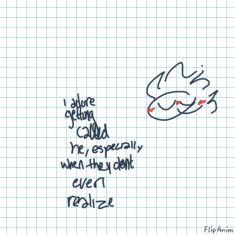 i adore
getting
called
he, especially
when they dont
even
realize
FlipAnim